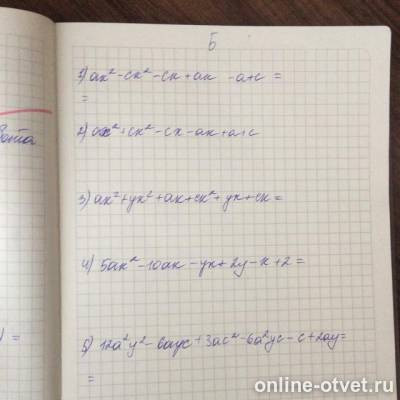 Б
1) ax² - cx² - cx + ax - a + c =
=
2) ax² + cx² - cx - ax + a + c
3) ax² + yx² + ax + cx² + yx + cx =
4) 5ax² - 10ax - yx + 2y - x + 2 =
5) 12a²y² - 6ayc + 3ac² - 6a²yc - c + 2ay =
=
) =
online-otvet.ru